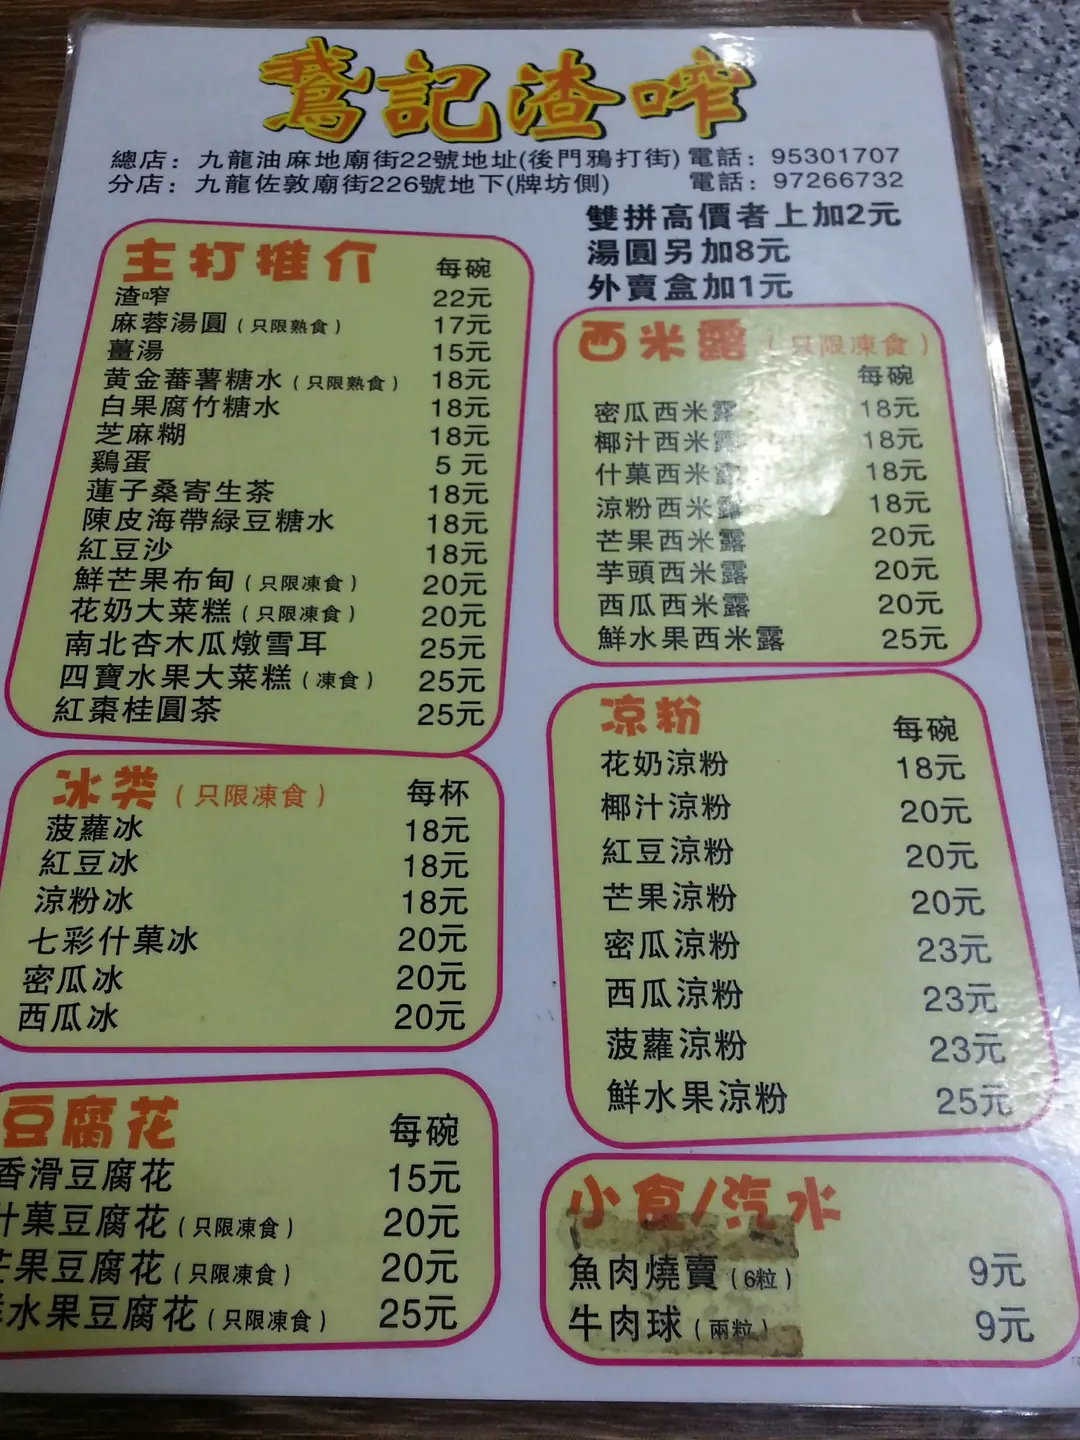 鵞記渣咋
總店：九龍油麻地廟街22號地址(後門鴉打街) 電話：95301707
分店：九龍佐敦廟街226號地下(牌坊側) 電話：97266732
雙拼高價者上加2元
湯圓另加8元
外賣盒加1元
主打推介 每碗
渣咋 22元
麻蓉湯圓(只限熟食) 17元
薑湯 15元
黄金蕃薯糖水(只限熟食) 18元
白果腐竹糖水 18元
芝麻糊 18元
鷄蛋 5元
蓮子桑寄生茶 18元
陳皮海帶緑豆糖水 18元
紅豆沙 18元
鮮芒果布甸(只限凍食) 20元
花奶大菜糕(只限凍食) 20元
南北杏木瓜燉雪耳 25元
四寶水果大菜糕(凍食) 25元
紅棗桂圓茶 25元
冰类(只限凍食) 每杯
菠蘿冰 18元
紅豆冰 18元
涼粉冰 18元
七彩什菓冰 20元
密瓜冰 20元
西瓜冰 20元
豆腐花 每碗
香滑豆腐花 15元
什菓豆腐花(只限凍食) 20元
芒果豆腐花(只限凍食) 20元
水果豆腐花(只限凍食) 25元
西米露(只限凍食)
每碗
密瓜西米露 18元
椰汁西米露 18元
什菓西米露 18元
涼粉西米露 18元
芒果西米露 20元
芋頭西米露 20元
西瓜西米露 20元
鮮水果西米露 25元
凉粉 每碗
花奶涼粉 18元
椰汁涼粉 20元
紅豆涼粉 20元
芒果涼粉 20元
密瓜涼粉 23元
西瓜涼粉 23元
菠蘿涼粉 23元
鮮水果涼粉 25元
小食/汽水
魚肉燒賣(6粒) 9元
牛肉球(兩粒) 9元